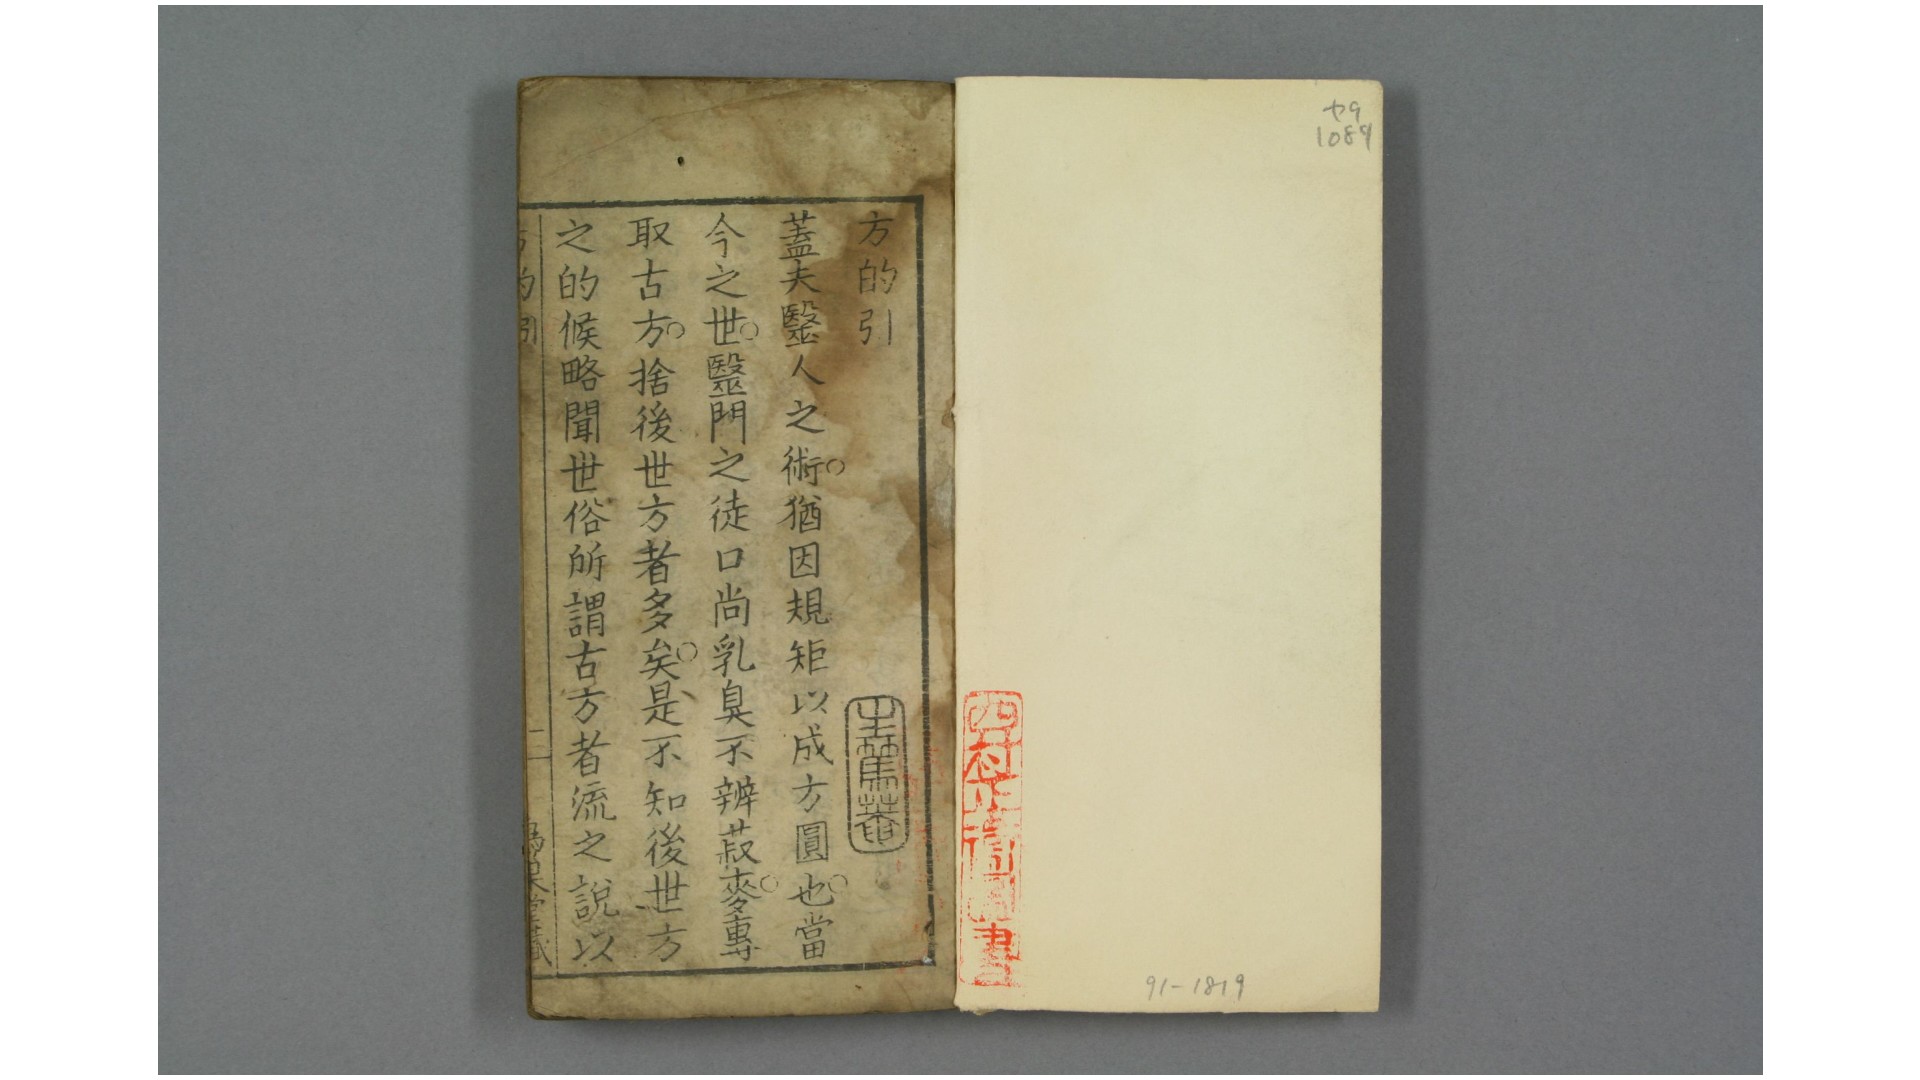 ヤ9
1089
91-1819
方的引
蓋夫醫人之術○猶因規矩以成方圓也○當
今之世○醫門之徒口尚乳臭不辨菽麥○專
取古方○捨後世方者多矣○是不知後世方
之的候略聞世俗所謂古方者流之說以
方的引
二